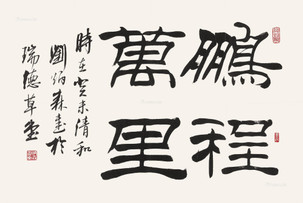 鵬程
萬里
時在癸未清和
劉炳森書於
瑞德草堂